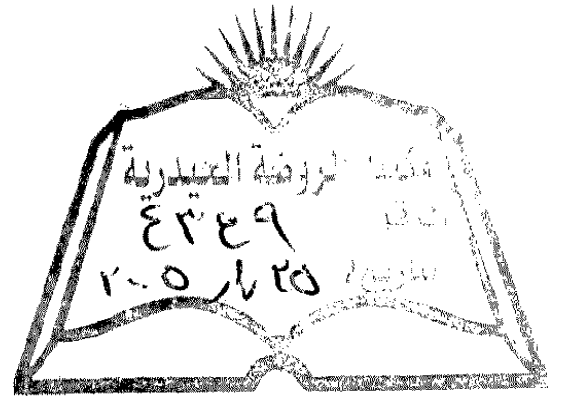 مكتبة الروضة الحيدرية
الرقم ٤٣٤٩
التاريخ ٢٥ ٢٠٠٥